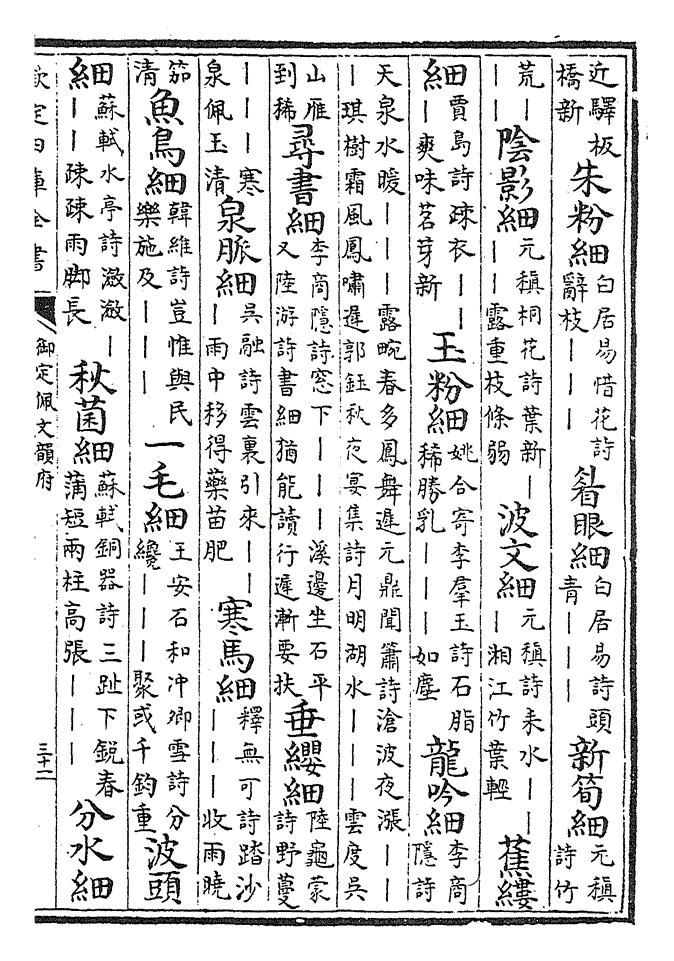 近驛板
橋新
朱粉細
白居易惜花詩
辭枝｜｜｜
㸔眼細
白居易詩頭
青｜｜｜
新筍細
元稹
詩竹
荒｜
｜｜
陰影細
元稹桐花詩葉新｜
｜｜露重枝條弱
波文細
元稹詩耒水｜
｜｜湘江竹葉輕
蕉縷
細
賈島詩疎衣｜｜
｜爽味茗芽新
玉粉細
姚合寄李羣玉詩石脂
稀勝乳｜｜｜｜如塵
龍吟細
李商
隱詩
天泉水暖｜｜｜露畹春多鳳舞遲元鼎聞簫詩滄波夜漲｜｜
｜琪樹霜風鳳嘯遲郭鈺秋夜宴集詩月明湖水｜｜｜雲度吳
山雁
到稀
尋書細
李商隱詩窓下｜｜｜溪邊坐石平
又陸游詩書細猶能讀行遲漸要扶
垂纓細
陸龜蒙
詩野蔓
｜｜｜寒
泉佩玉清
泉脈細
吳融詩雲裏引來｜｜
｜雨中移得藥苗肥
寒馬細
釋無可詩踏沙
｜｜｜收雨曉
笳
清
魚鳥細
韓維詩豈惟與民
樂施及｜｜｜
一毛細
王安石和冲卿雪詩分
纔｜｜｜聚或千鈞重
波頭
細
蘇軾水亭詩潋潋｜
｜｜疎疎雨脚長
秋菌細
蘇軾銅器詩三趾下鋭春
蒲短兩柱高張｜｜｜
分水細
欽定四庫全書
御定佩文韻府
三十二